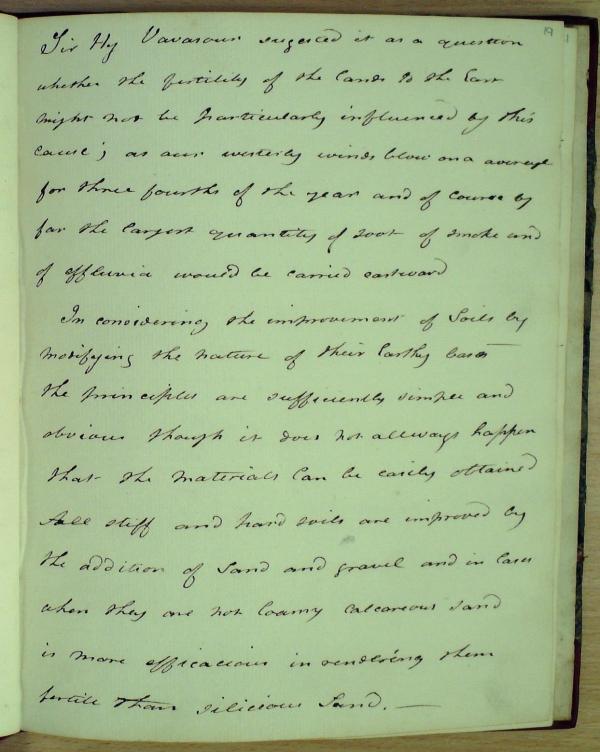 19
Sir Hy Vavasour sugested it as a question
whether the fertility of the lands to the East
might not be particularly influenced by this
cause; as our westerly winds blow on a average
for three fourths of the year and of course by
far the largest quantity of soot of smoke and
of effluvia would be carried eastward
In considering the improvement of Soils by
modifying the nature of their Earthy bases
the principles are sufficiently simple and
obvious though it does not allways happen
that the materials Can be easily obtained
All stiff and hard soils are improved by
the addition of Sand and gravel and in Cases
when they are not loamy calcareous sand
is more efficacious in rendering them
fertile than silicious Sand. —